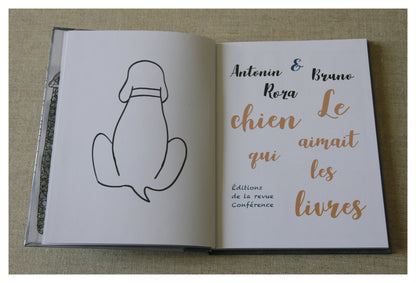 Antonin & Bruno
Rora
Le
chien
aimait
qui
les
livres
Éditions
de la revue
Conférence